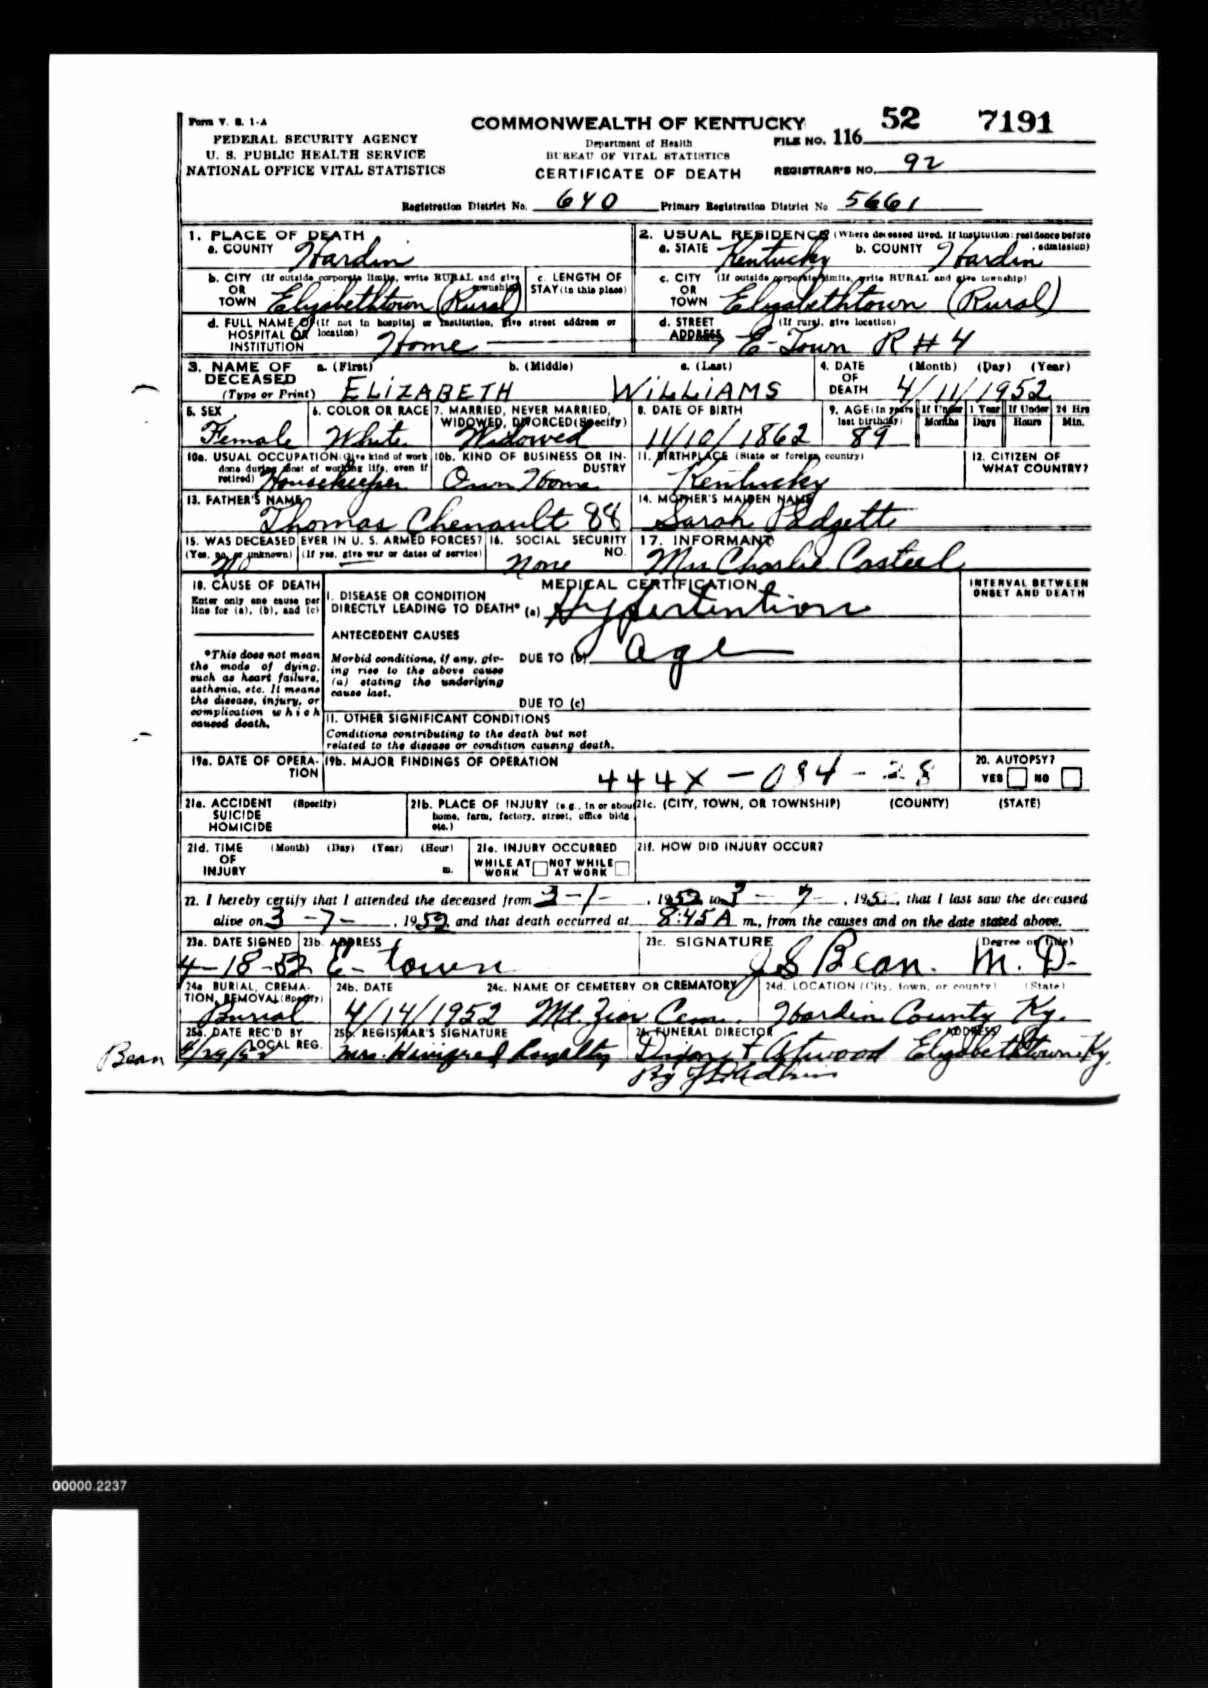 Form V. S. 1-A
FEDERAL SECURITY AGENCY
U. S. PUBLIC HEALTH SERVICE
NATIONAL OFFICE VITAL STATISTICS
COMMONWEALTH OF KENTUCKY
Department of Health
BUREAU OF VITAL STATISTICS
CERTIFICATE OF DEATH
FILE NO. 116 52 7191
REGISTRAR'S NO. 92
Registration District No. 640 Primary Registration District No 5661
1. PLACE OF DEATH
a. COUNTY Hardin
2. USUAL RESIDENCE (Where deceased lived. If institution: residence before admission)
a. STATE Kentucky b. COUNTY Hardin
b. CITY (If outside corporate limits, write RURAL and give township)
OR
TOWN Elizabethtown (Rural)
c. LENGTH OF
STAY (in this place)
c. CITY (If outside corporate limits, write RURAL and give township)
OR
TOWN Elizabethtown (Rural)
d. FULL NAME OF (If not in hospital or institution, give street address or location)
HOSPITAL OR
INSTITUTION Home
d. STREET (If rural, give location)
ADDRESS E-Town R#4
3. NAME OF DECEASED
(Type or Print)
a. (First) b. (Middle) c. (Last)
ELIZABETH WILLIAMS
4. DATE OF DEATH (Month) (Day) (Year)
4/11/1952
5. SEX
Female
6. COLOR OR RACE
White
7. MARRIED, NEVER MARRIED,
WIDOWED, DIVORCED (Specify)
Widowed
8. DATE OF BIRTH
11/10/1862
9. AGE (In years last birthday)
89
If Under 1 Year If Under 24 Hrs
Months Days Hours Min.
10a. USUAL OCCUPATION (Give kind of work done during most of working life, even if retired)
Housekeeper
10b. KIND OF BUSINESS OR INDUSTRY
Own Home
11. BIRTHPLACE (State or foreign country)
Kentucky
12. CITIZEN OF
WHAT COUNTRY?
13. FATHER'S NAME
Thomas Chenault 88
14. MOTHER'S MAIDEN NAME
Sarah Padgett
15. WAS DECEASED EVER IN U. S. ARMED FORCES?
(Yes, no, or unknown) (If yes, give war or dates of service)
No
16. SOCIAL SECURITY NO.
None
17. INFORMANT
Mrs Charlie Casteel
18. CAUSE OF DEATH
Enter only one cause per
line for (a), (b), and (c)
*This does not mean
the mode of dying,
such as heart failure,
asthenia, etc. It means
the disease, injury, or
complication which
caused death.
MEDICAL CERTIFICATION
I. DISEASE OR CONDITION
DIRECTLY LEADING TO DEATH* (a) Hypertention
ANTECEDENT CAUSES
Morbid conditions, if any, giv-
ing rise to the above cause
(a) stating the underlying
cause last.
DUE TO (b) age
DUE TO (c)
II. OTHER SIGNIFICANT CONDITIONS
Conditions contributing to the death but not
related to the disease or condition causing death.
INTERVAL BETWEEN
ONSET AND DEATH
19a. DATE OF OPERA-
TION
19b. MAJOR FINDINGS OF OPERATION
444X - 084 - 28
20. AUTOPSY?
YES NO
21a. ACCIDENT (Specify)
SUICIDE
HOMICIDE
21b. PLACE OF INJURY (e.g., in or about
home, farm, factory, street, office bldg
etc.)
21c. (CITY, TOWN, OR TOWNSHIP) (COUNTY) (STATE)
21d. TIME (Month) (Day) (Year) (Hour)
OF
INJURY m.
21e. INJURY OCCURRED
WHILE AT WORK NOT WHILE AT WORK
21f. HOW DID INJURY OCCUR?
22. I hereby certify that I attended the deceased from 3-1-, 1952 to 3-7-, 195, that I last saw the deceased
alive on 3-7-, 1952 and that death occurred at 8:45 A m., from the causes and on the date stated above.
23a. DATE SIGNED
4-18-52
23b. ADDRESS
E-town
23c. SIGNATURE (Degree or title)
J S Bean. M. D.
24a. BURIAL, CREMA-
TION, REMOVAL (Specify)
Burial
24b. DATE
4/14/1952
24c. NAME OF CEMETERY OR CREMATORY
Mt. Zion Cem.
24d. LOCATION (City, town, or county) (State)
Hardin County Ky.
25a. DATE REC'D BY
LOCAL REG.
4/29/52
25b. REGISTRAR'S SIGNATURE
Mrs. Winifred Royalty
26. FUNERAL DIRECTOR ADDRESS
Dixon & Atwood Elizabethtown Ky.
By
Bean
00000.2237